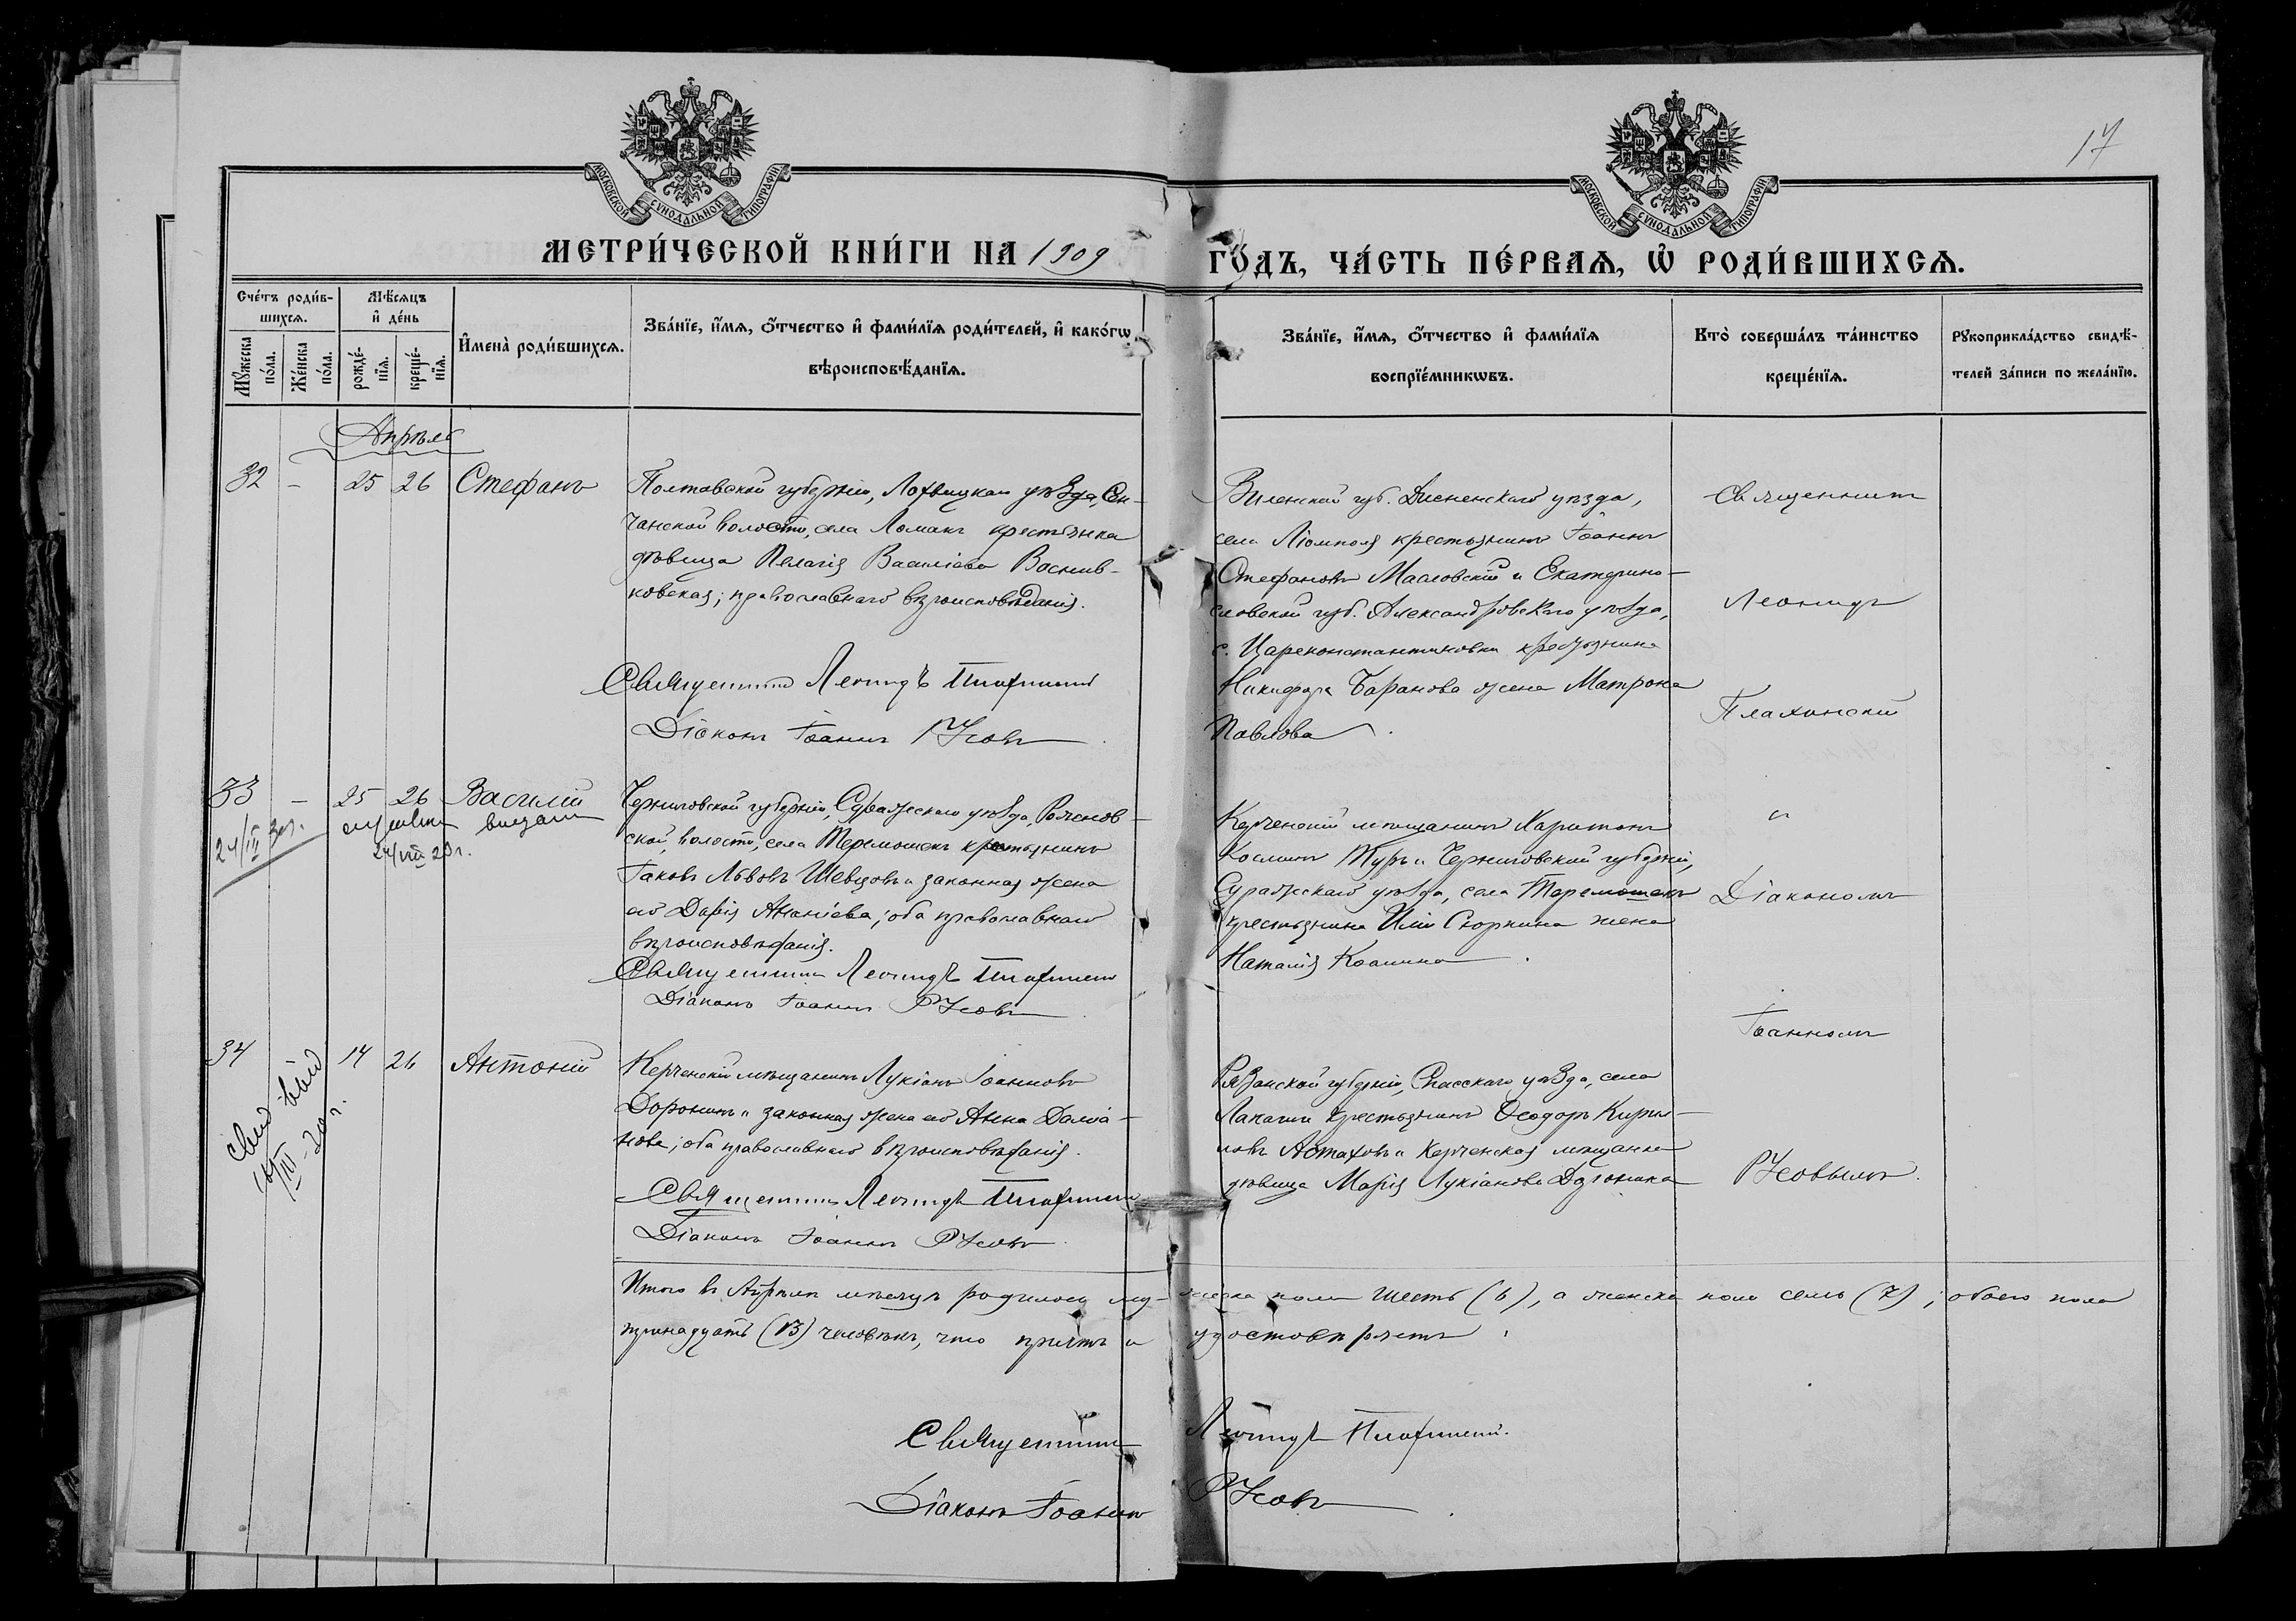 17
МОСКОВСКОЙ СУНОДАЛЬНОЙ ТИПОГРАФІИ
МОСКОВСКОЙ СУНОДАЛЬНОЙ ТИПОГРАФІИ
МЕТРИ́ЧЕСКОЙ КНИ́ГИ НА 1909
ГО́ДЪ, ЧА́СТЬ ПЕ́РВАѦ, Ѡ҆ РОДИ́ВШИХСѦ.
Сче́тъ роди́в-
шихсѧ.
Мꙋ́жеска
по́ла.
Же́нска
по́ла.
Мѣ́сѧцъ
и҆ де́нь
рожде́-
нїѧ.
креще́-
нїѧ.
И҆мена̀ роди́вшихсѧ.
Зва́нїе, и҆́мѧ, ѻ҆́тчество и҆ фами́лїѧ роди́телей, и҆ како́гѡ
вѣроисповѣ́данїѧ.
Зва́нїе, и҆́мѧ, ѻ҆́тчество и҆ фами́лїѧ
воспрїе́мникѡвъ.
Кто̀ соверша́лъ та́инство
креще́нїѧ.
Рꙋкоприкла́дство свидѣ́-
телей за́писи по жела́нїю.
Апрѣль
32 - 25 26 Стефанъ
Полтавской губерніи, Лохвицкаго уѣзда, Сен-
чанской волости, села Ломакъ крестьянка
дѣвица Пелагія Василіева Воснив-
ковская; православнаго вѣроисповѣданія.
Священникъ Леонидъ
Діаконъ Іоаннъ Русовъ
Виленской губ. Дисненскаго уѣзда,
села крестьянинъ Іоаннъ
Стефановъ Масловскій и Екатерино-
славской губ. Александровскаго уѣзда,
с. Цареконстантиновки крестьянина
Никифора Баранова жена Матрона
Павлова
Священникъ
Леонидъ
33 - 25 26 Василій
24/VIII 29 г.
Черниговской губерніи, Суражскаго уѣзда,
ской волости, села Теремошекъ крестьянинъ
Іаковъ Львовъ Шевцовъ и законная жена
его Дарія Ананіева; оба православнаго
вѣроисповѣданія.
Священникъ Леонидъ
Діаконъ Іоаннъ Русовъ
Керченскій мѣщанинъ Харитонъ
Косминъ и Черниговской губерніи,
Суражскаго уѣзда, села Теремошекъ
крестьянина Иліи Скоркина жена
Наталія Космина
"
Діакономъ
Іоанномъ
Русовымъ.
34 14 26 Антоній
Керченскій мѣщанинъ Лукіанъ Іоанновъ
Доронинъ и законная жена его Анна Даміа-
нова; оба православнаго вѣроисповѣданія.
Священникъ Леонидъ
Діаконъ Іоаннъ Русовъ
Рязанской губерніи, Спасскаго уѣзда, села
крестьянинъ Ѳеодоръ Кирил-
ловъ Астаховъ и Керченская мѣщанка
дѣвица Марія Лукіанова Доронина
Итого въ Апрѣлѣ мѣсяцѣ родилось му- жеска пола шесть (6), а женска пола семь (7); обоего пола
тринадцать (13) человѣкъ, что причтъ и удостовѣряетъ.
Священникъ Леонидъ
Діаконъ Іоаннъ Русовъ